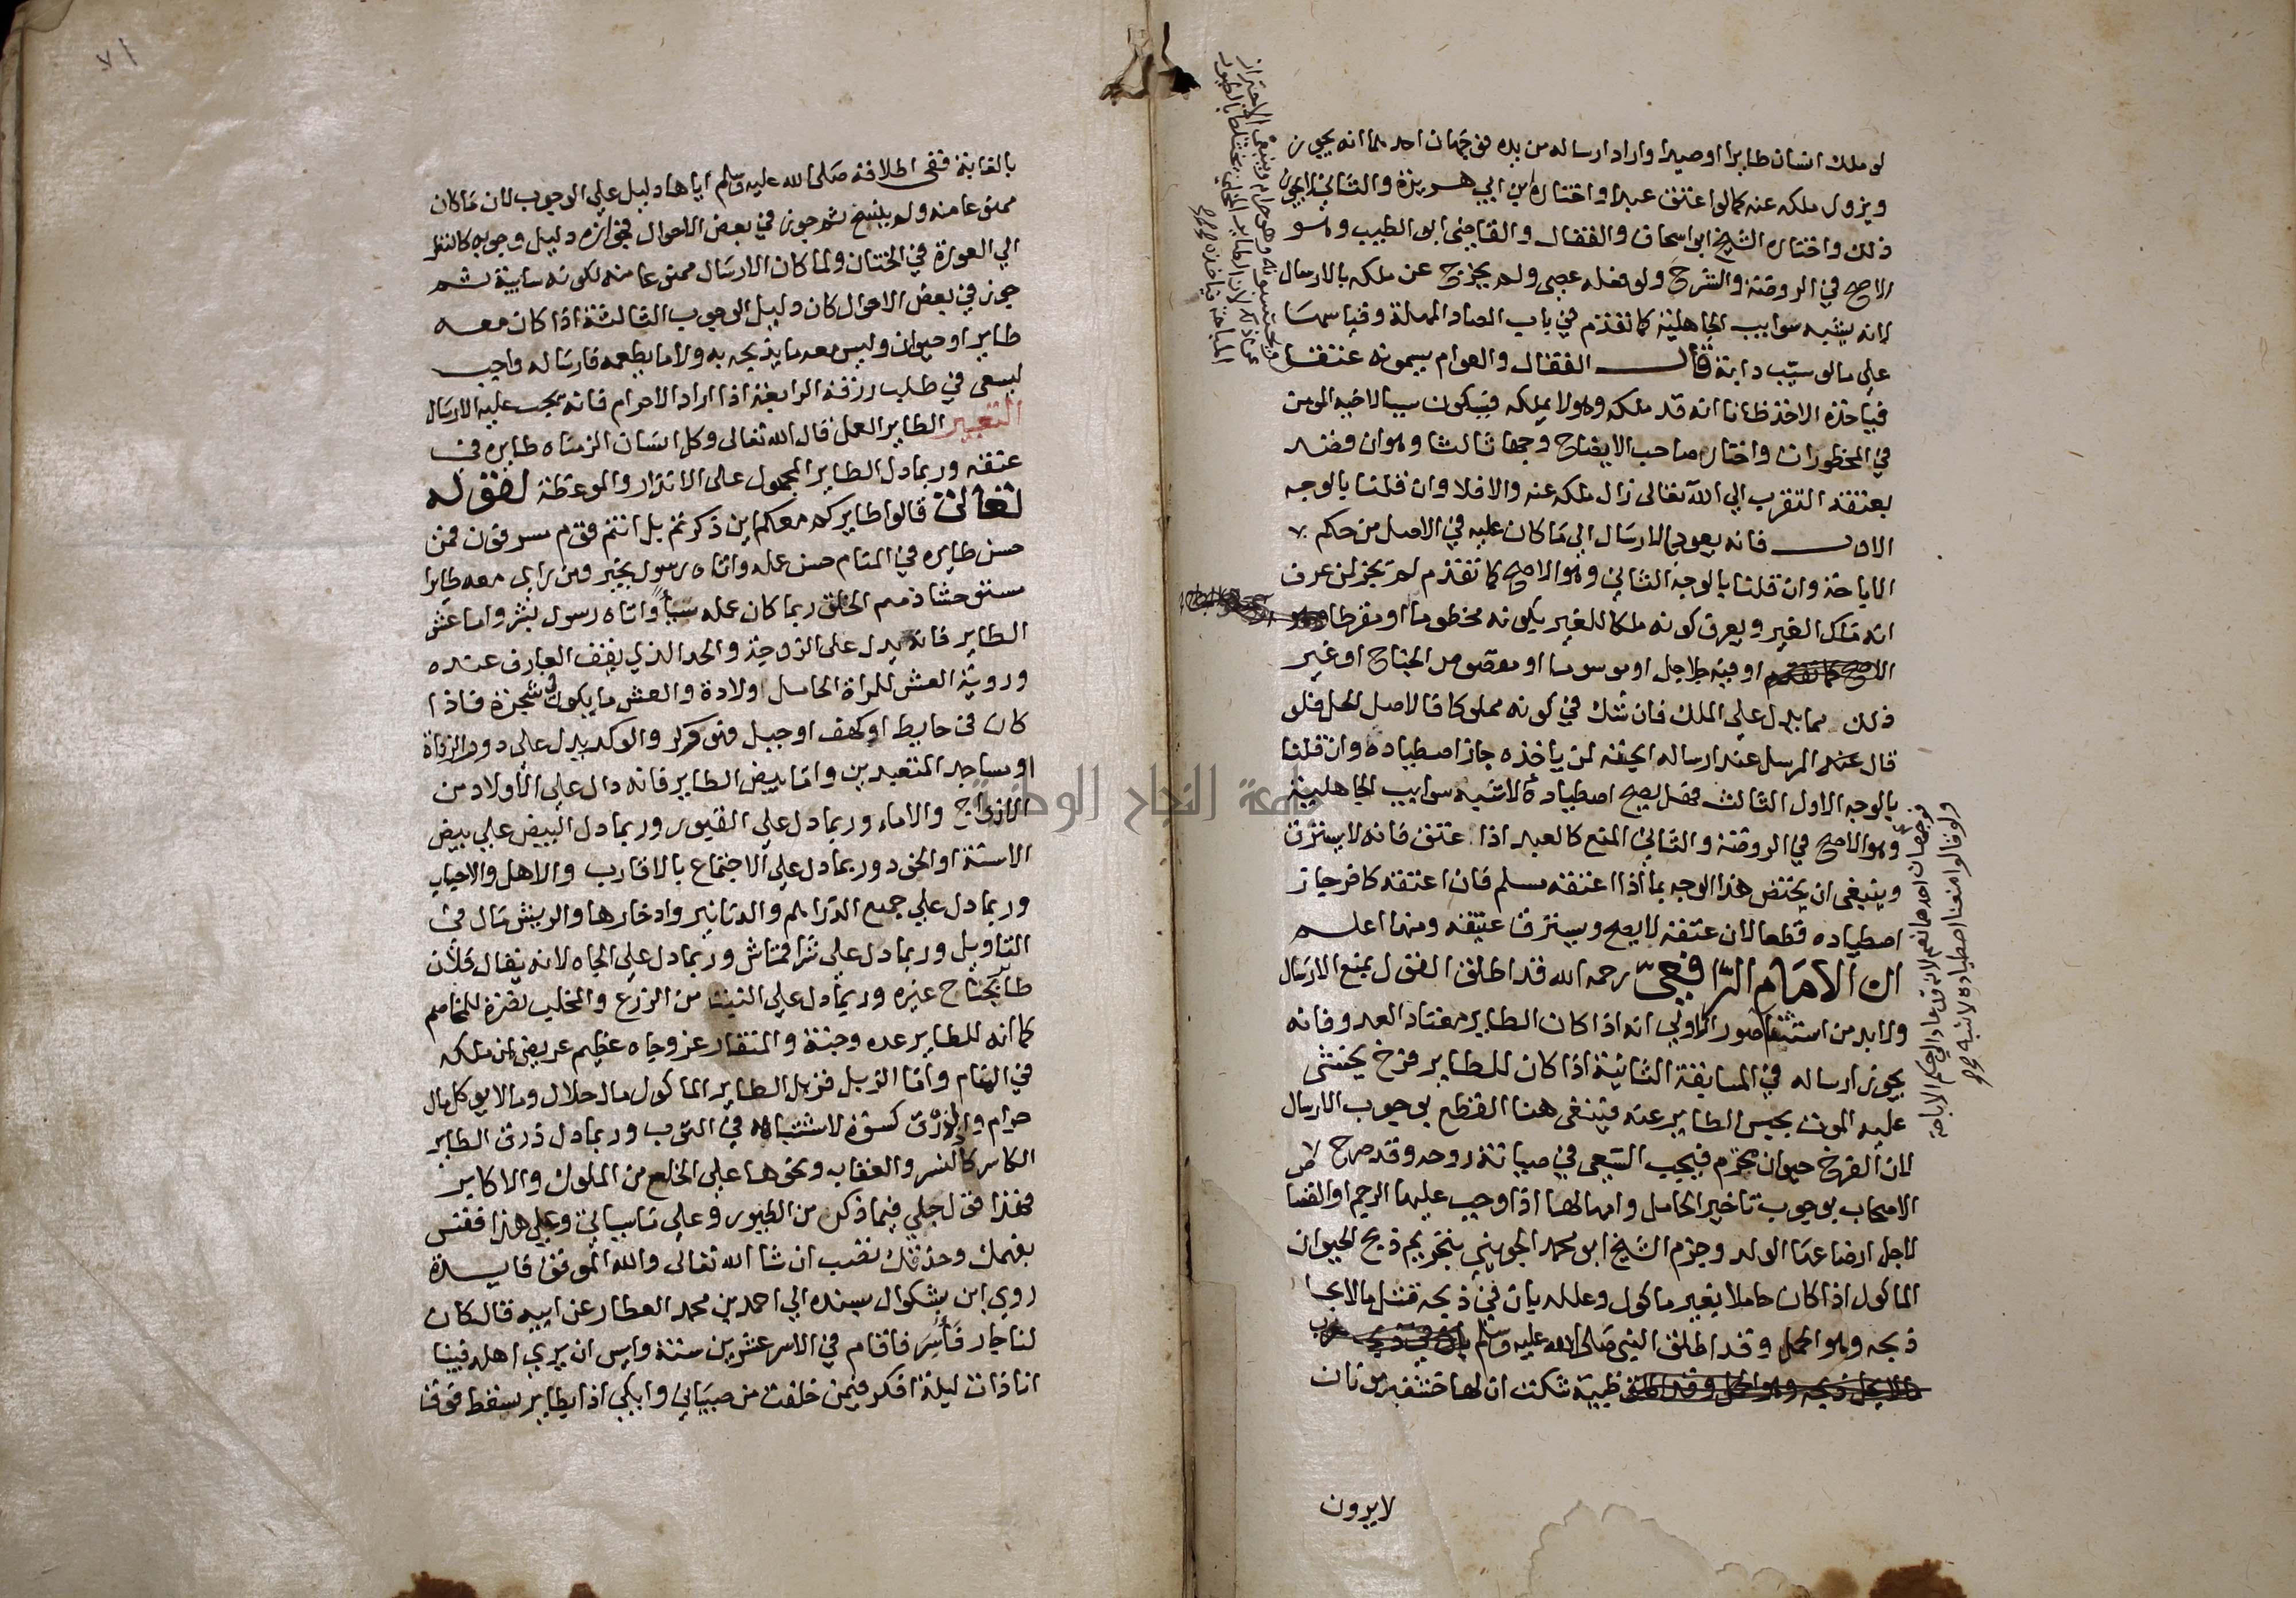 لو ملك انسان طايرا او صيدا واراد ارساله من يده فوجهان احدهما انه يجوز
ويزول ملكه عنه كما لو اعتق عبدا واختاره ابن ابي هريرة والثاني لا يجوز
ذلك واختاره الشيخ ابو اسحاق والقفال والقاضي ابو الطيب وهو
الاصح في الروضة والشرح ولو فعله عصى ولم يخرج عن ملكه بالارسال
لانه يشبه سوايب الجاهلية كما تقدم في باب الصاد المهملة وقياسها
على ما لو سيب دابة قال القفال والعوام يسمونه عتقا
فياخذه الاخذ ظانا انه قد ملكه وهو لا يملكه فيكون سببا لاخيه المومن
في المحظورات واختار صاحب الايضاح وجها ثالثا وهو ان قصد
بعتقه التقرب الي الله تعالى زال ملكه عنه والا فلا وان قلنا بالوجه
الاول فانه يعود بالارسال الي ما كان عليه في الاصل من حكم
الاباحة وان قلنا بالوجه الثاني وهو الاصح كما تقدم لم يجز لمن عرف
انه ملك الغير ويعرف كونه ملكا للغير بكونه مخطوما او مقرطا
او فيه جلاجل او موسوما او مقصوص الجناح او غير
ذلك مما يدل علي الملك فان شك في كونه مملوكا فالاصل الحل فلو
قال المرسل عند ارساله ابحته لمن ياخذه جاز اصطياده وان قلنا
بالوجه الاول الثالث فهل يصح اصطياده لاشبه سوايب الجاهلية
وهو الاصح في الروضة والثاني المنع كالعبد اذا عتق فانه لا يسترق
وينبغي ان يختص هذا الوجه بما اذا اعتقه مسلم فان اعتقه كافر جاز
اصطياده قطعا لان عتقه لا يصح ويسترق عتيقه ومنها اعلم
ان الامام الرافعي رحمه الله قد اطلق القول بمنع الارسال
ولا بد من استثنا صور الاولي انه اذا كان الطاير معتاد العدو فانه
يجوز ارساله في المسابقة الثانية اذا كان للطاير فرخ يخشى
عليه الموت بحبس الطاير عنه فينبغي هنا القطع بوجوب الارسال
لان الفرخ حيوان محترم فيجب السعي في صيانة روحه وقد صرح
الاصحاب بوجوب تاخير الحامل وامهالها اذا وجب عليها الرجم او القصا
لاجل ارضاعها الولد وجزم الشيخ ابو محمد الجويني بتحريم ذبح الحيوان
الماكول اذا كان حاملا بغير ماكول وعلله بان في ذبحه قتل ما لا يحل
ذبحه وهو الحمل وقد اطلق النبي صلى الله عليه وسلم
ظبية شكت ان لها خشفين
لا يرون
ويحتسبونه وهو حرام وينبغي الاحتراز
عن ذلك لان الطاير المخلي يختلط بالطيور
المباحة فياخذه
ولو قالوا منعنا اصطياده لاشبه
فوجهان احدهما نعم لانه قد عاد الي حكم الاباحة
٧١
بالغابة ففي اطلاقه صلى الله عليه وسلم اياها دليل علي الوجوب لان ما كان
ممنوعا منه ولم ينسخ ثم جوز في بعض الاحوال فجوازه دليل وجوبه كالنظر
الي العورة في الختان ولما كان الارسال ممنوعا منه لكونه سايبة ثم
جوز في بعض الاحوال كان دليل الوجوب الثالثة اذا كان معه
طاير او حيوان وليس معه ما يذبحه به ولا ما يطعمه فارساله واجب
ليسعى في طلب رزقه الرابعة اذا اراد الاحرام فانه يجب عليه الارسال
التعبير الطاير العمل قال الله تعالى وكل انسان الزمناه طايره في
عنقه وربما دل الطاير المجهول على الانذار والموعظة لقوله
تعالى قالوا طايركم معكم اين ذكرتم بل انتم قوم مسرفون فمن
حسن طايره في المنام حسن عمله واتاه رسول بخير ومن راي معه طايرا
مستوحشا ذميم الخلق ربما كان عمله سيا واتاه رسول بشر واما عش
الطاير فانه يدل على الزوجة والحد الذي يقف العارف عنده
وروية العش للمراة الحامل ولادة والعش ما يكون في شجرة فاذا
كان في حايط او كهف او جبل فهو وكر والوكر يدل على دور الزناة
او مساجد المتعبدين واما بيض الطاير فانه دال علي الاولاد من
الازواج والاماء وربما دل علي القبور وربما دل البيض علي بيض
الاسنة او الخود وربما دل علي الاجتماع بالاقارب والاهل والاحباب
وربما دل علي جمع الدراهم والدنانير وادخارها والريش مال في
التاويل وربما دل على شرا قماش وربما دل علي الجاه لانه يقال فلان
طار بجناح غيره وربما دل علي النبت من الزرع والمخلب نصرة للمخاصم
كما انه للطاير عده وجنة والمنقار عز وجاه عظيم عريض لمن ملكه
في المنام واما الزبل فزبل الطاير الماكول مال حلال وما لا يوكل مال
حرام والذرق كسوة لاشتباهه في الثوب وربما دل ذرق الطاير
الكاسر كالنسر والعقاب ونحوها علي الخلع من الملوك والاكابر
فهذا قول جملي فيما ذكر من الطيور وعلي ما سياتي وعلي هذا فقس
بفهمك وحذقك تصب ان شا الله تعالى والله الموفق فايدة
روي ابن بشكوال بسنده الي احمد بن محمد العطار عن ابيه قال كان
لنا جار فاسر فاقام في الاسر عشرين سنة وايس ان يري اهله فبينا
انا ذات ليلة افكر فيمن خلفت من صبياني وابكي اذا بطاير سقط فوق
جامعة النجاح الوطنية